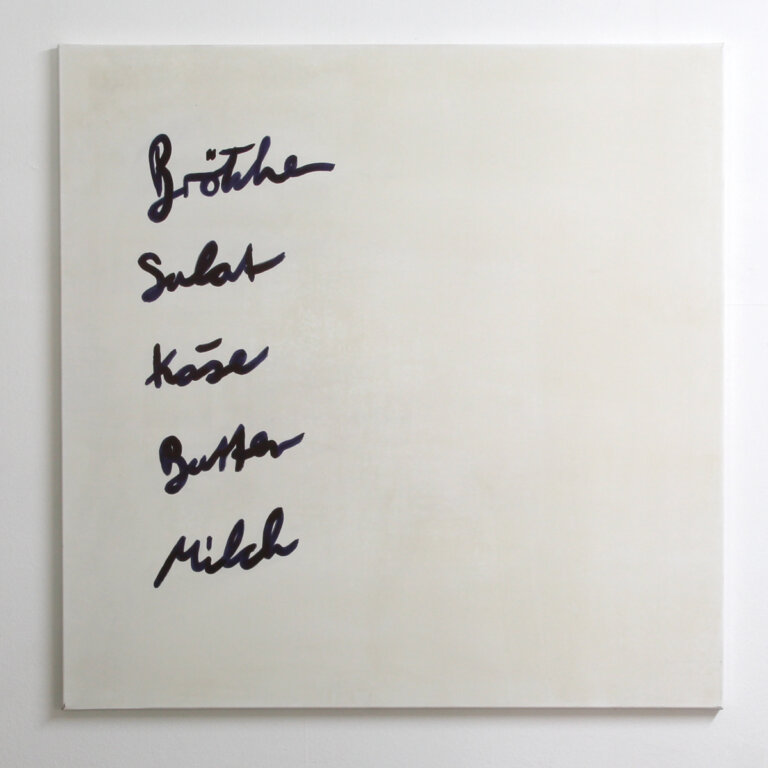 Brötchen
Salat
Käse
Butter
Milch